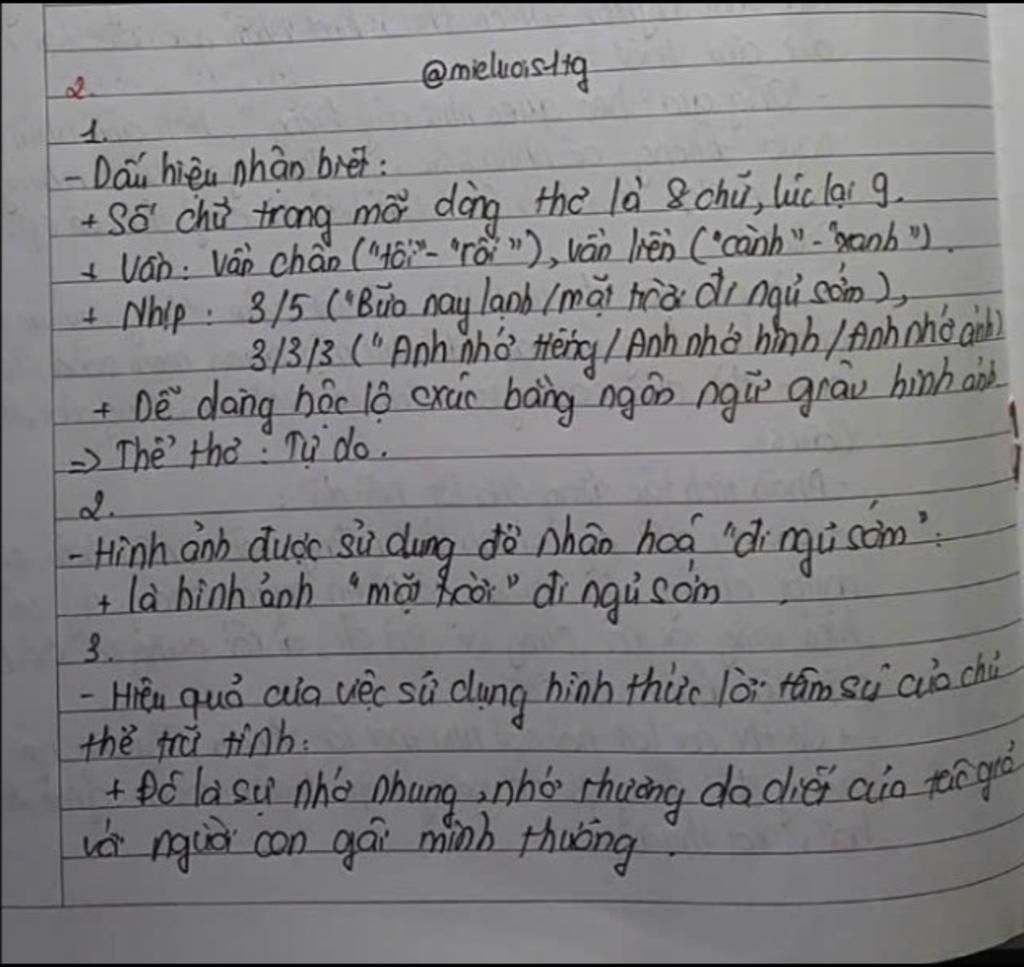 @mieluoisltg
2.
1.
- Dấu hiệu nhận biết:
+ Số chữ trong mỗi dòng thơ là 8 chữ, lúc lại 9.
+ Vần: Vần chân ("tôi" - "rồi"), vần liền ("cành" - "xanh").
+ Nhịp: 3/5 ("Bữa nay lạnh / mặt trời đi ngủ sớm),
3/3/3 ("Anh nhớ tiếng / Anh nhớ hình / Anh nhớ ảnh)
+ Dễ dàng bộc lộ cxúc bằng ngôn ngữ giàu hình ảnh
=> Thể thơ: Tự do.
2.
- Hình ảnh được sử dụng để nhân hoá "đi ngủ sớm":
+ là hình ảnh "mặt trời" đi ngủ sớm.
3.
- Hiệu quả của việc sử dụng hình thức lời tâm sự của chủ
thể trữ tình:
+ Đó là sự nhớ nhung, nhớ thương da diết của tác giả
với người con gái mình thương.